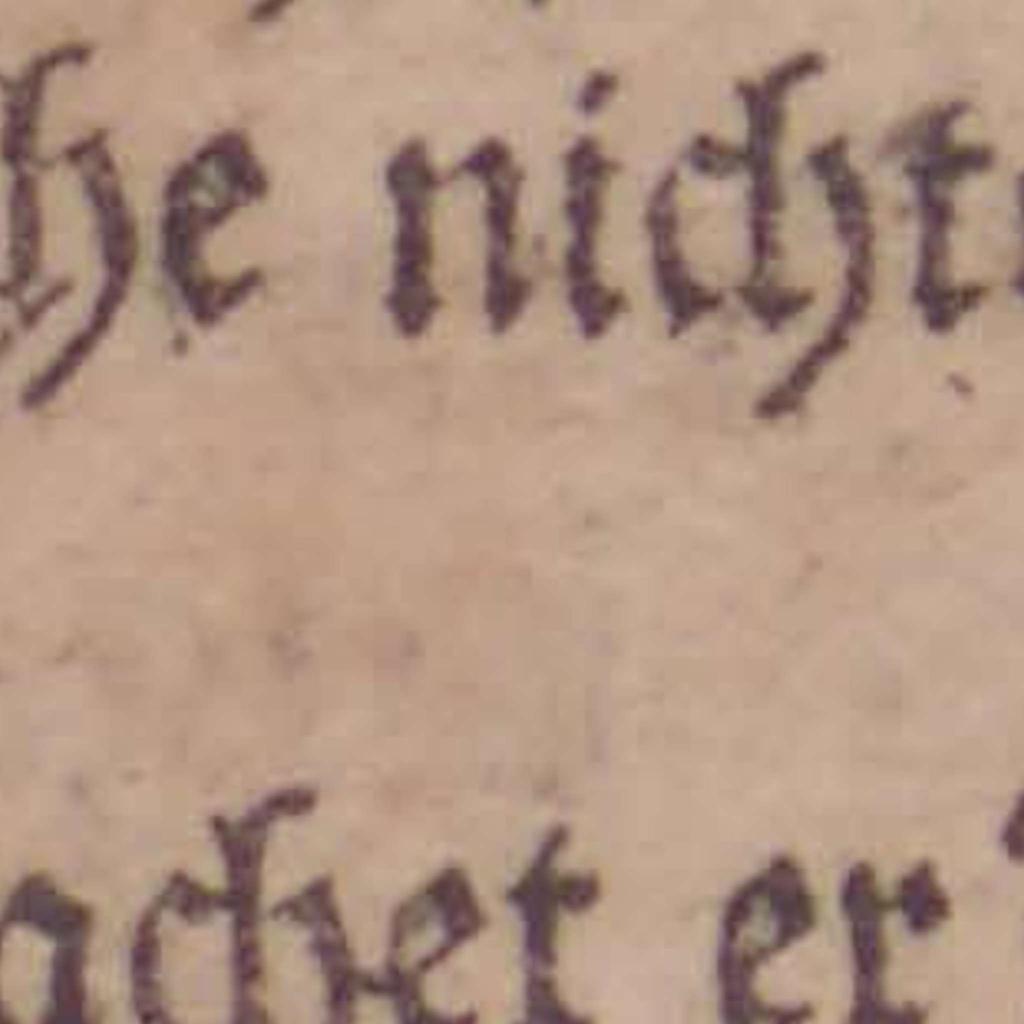 he nicht
achet er